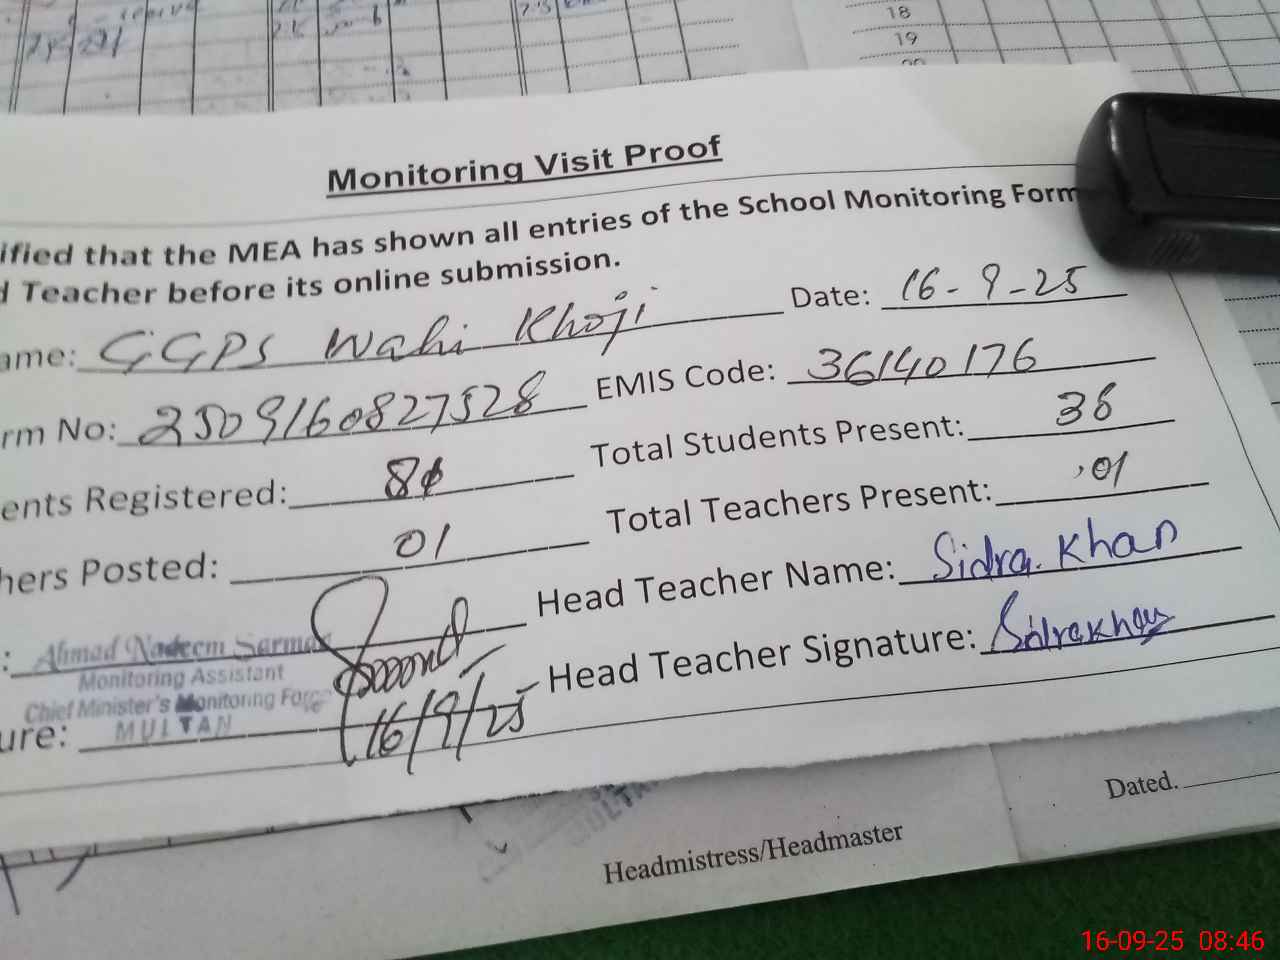 18
19
Monitoring Visit Proof
ified that the MEA has shown all entries of the School Monitoring Form
d Teacher before its online submission.
ame: GGPS Wahi Khoji Date: 16-9-25
rm No: 2509160827528 EMIS Code: 36140176
ents Registered: Total Students Present: 38
hers Posted: 01 Total Teachers Present: 01
Head Teacher Name: Sidra. Khan
: Ahmad Nadeem Sarmad
Monitoring Assistant
Chief Minister's Monitoring Force
MULTAN
ure: 16/9/25 Head Teacher Signature: Sidrakhan
Dated.
Headmistress/Headmaster
16-09-25 08:46